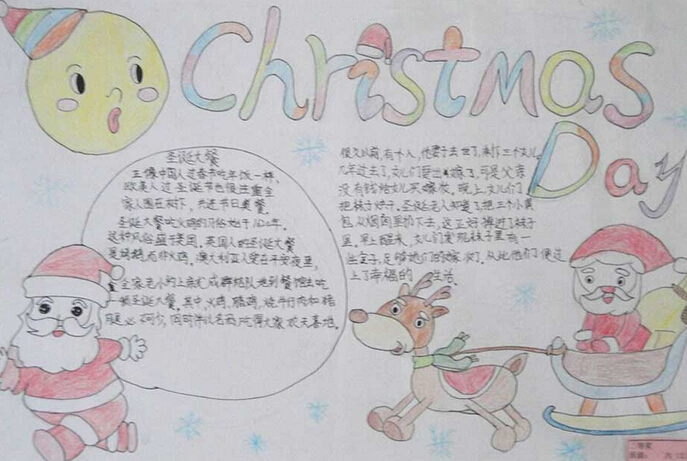 Christmas
Day
圣诞大餐
正像中国人过春节吃年饭一样，
欧美人过圣诞节也很注重全
家人围在树下，共进节日美餐。
圣诞大餐吃火鸡的习俗始于1620年。
这种风俗盛于美国。英国人的圣诞大餐
是烤鹅，而非火鸡。澳大利亚人爱在平安夜里，
全家老小约上亲友成群结队地到餐馆去吃
一顿圣诞大餐。其中，火鸡、腊鸡、烧牛仔肉和猪
腿必不可少，同时伴以名酒，吃得大家欢天喜地。
很久以前，有个人，他妻子去世了，剩下三个女儿。
几年过去了，女儿们要出嫁了，可是父亲
没有钱给女儿买嫁妆。晚上，女儿们
把袜子烘干。圣诞老人知道了，把三个小黄
包从烟囱里扔下去，这正好掉进了袜子
里。早上醒来，女儿们发现袜子里有一
些金子，足够她们的嫁妆了。从此他们便过
上了幸福的 生活。
二等奖